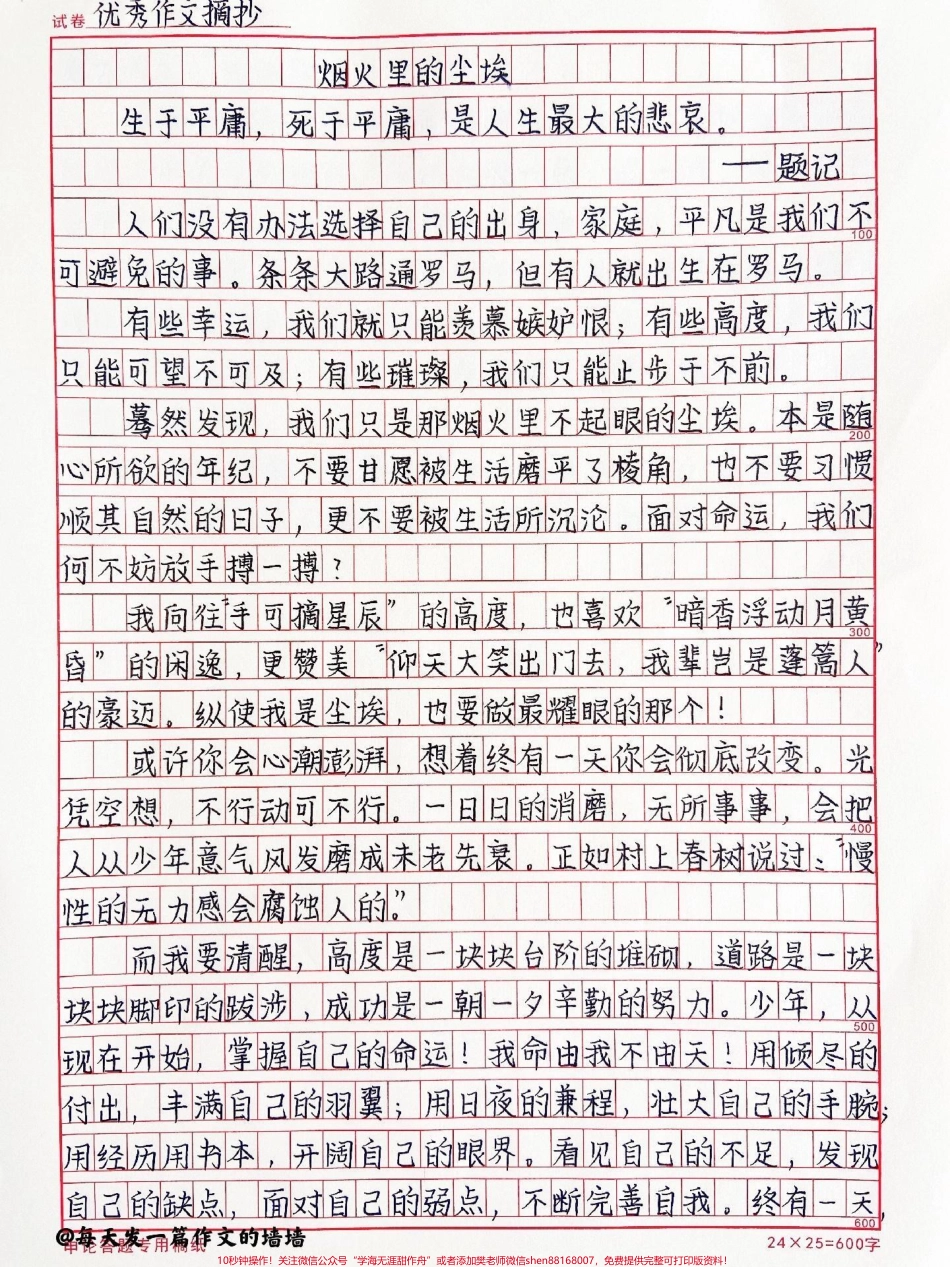 试卷 优秀作文摘抄
烟火里的尘埃
生于平庸，死于平庸，是人生最大的悲哀。
——题记
人们没有办法选择自己的出身，家庭，平凡是我们不
100
可避免的事。条条大路通罗马，但有人就出生在罗马。
有些幸运，我们就只能羡慕嫉妒恨；有些高度，我们
只能可望不可及；有些璀璨，我们只能止步于不前。
蓦然发现，我们只是那烟火里不起眼的尘埃。本是随
200
心所欲的年纪，不要甘愿被生活磨平了棱角，也不要习惯
顺其自然的日子，更不要被生活所沉沦。面对命运，我们
何不妨放手搏一搏？
我向往“手可摘星辰”的高度，也喜欢“暗香浮动月黄
300
昏”的闲逸，更赞美“仰天大笑出门去，我辈岂是蓬蒿人”
的豪迈。纵使我是尘埃，也要做最耀眼的那个！
或许你会心潮澎湃，想着终有一天你会彻底改变。光
凭空想，不行动可不行。一日日的消磨，无所事事，会把
400
人从少年意气风发磨成未老先衰。正如村上春树说过：“慢
性的无力感会腐蚀人的。”
而我要清醒，高度是一块块台阶的堆砌，道路是一块
块块脚印的跋涉，成功是一朝一夕辛勤的努力。少年，从
500
现在开始，掌握自己的命运！我命由我不由天！用倾尽的
付出，丰满自己的羽翼；用日夜的兼程，壮大自己的手腕；
用经历用书本，开阔自己的眼界。看见自己的不足，发现
自己的缺点，面对自己的弱点，不断完善自我。终有一天，
600
@每天发一篇作文的墙墙
申论答题专用稿纸 24×25=600字
10秒钟操作！关注微信公众号“学海无涯甜作舟”或者添加樊老师微信shen88168007，免费提供完整可打印版资料！